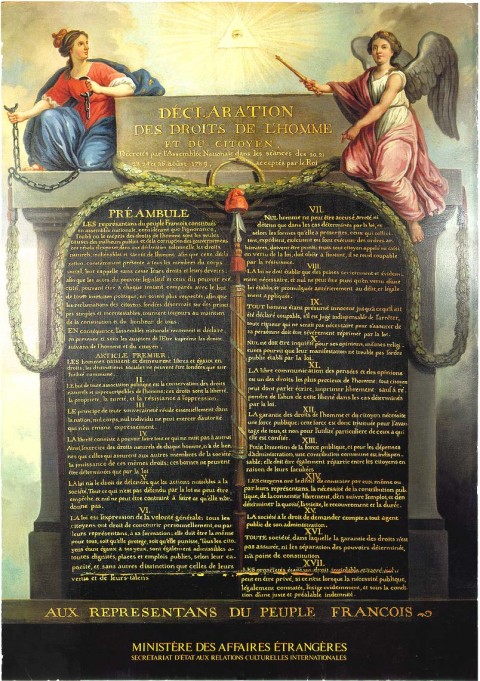 DÉCLARATION
DES DROITS DE L'HOMME
ET DU CITOYEN,
Décretés par l'Assemblée Nationale dans les séances des 20, 21
23, 24 et 26 août 1789, acceptés par le Roi
PRÉAMBULE
LES représentans du peuple François constitués
en assemblée nationale, considérant que l'ignorance,
l'oubli ou le mépris des droits de l'homme sont les seules
causes des malheurs publics et de la corruption des gouvernemens
ont résolu d'exposer dans une déclaration solemnelle, les droits
naturels, inaliénables et sacrés de l'homme; afin que cette décla-
ration, constamment présente à tous les membres du corps
social, leur rappelle sans cesse leurs droits et leurs devoirs;
afin que les actes du pouvoir législatif et ceux du pouvoir exé-
cutif, pouvant être à chaque instant comparés avec le but
de toute institution politique, en soient plus respectés; afin que
les réclamations des citoyens, fondées désormais sur des princi-
pes simples et incontestables, tournent toujours au maintien
de la constitution et du bonheur de tous.
EN conséquence, l'assemblée nationale reconnoit et déclare
en présence et sous les auspices de l'Être suprême les droits
suivans de l'homme et du citoyen.
ARTICLE PREMIER.
LES hommes naissent et demeurent libres et égaux en
droits; les distinctions sociales ne peuvent être fondées que sur
l'utilité commune.
II.
LE but de toute association politique est la conservation des droits
naturels et imprescriptibles de l'homme; ces droits sont la liberté,
la propriété, la sureté, et la résistance à l'oppression.
III.
LE principe de toute souveraineté réside essentiellement dans
la nation, nul corps, nul individu ne peut exercer d'autorité
qui n'en émane expressément.
IV.
LA liberté consiste à pouvoir faire tout ce qui ne nuit pas à autrui
Ainsi, l'exercice des droits naturels de chaque homme, n'a de bor-
nes que celles qui assurent aux autres membres de la société
la jouissance de ces mêmes droits; ces bornes ne peuvent
être déterminées que par la loi
V.
LA loi n'a le droit de défendre que les actions nuisibles à la
société. Tout ce qui n'est pas défendu par la loi ne peut être
empêché, et nul ne peut être contraint à faire ce qu'elle n'or-
donne pas.
VI.
LA loi est l'expression de la volonté générale; tous les
citoyens ont droit de concourir personnellement, ou par
leurs représentans, à sa formation; elle doit être la même
pour tous, soit qu'elle protege, soit qu'elle punisse. Tous les cito-
yens étant égaux à ses yeux, sont également admissibles à
toutes dignités, places et emplois publics, selon leur ca-
pacité, et sans autres distinction que celles de leurs
vertus et de leurs talens
VII.
NUL homme ne peut être accusé, arreté, ni
détenu que dans les cas déterminés par la loi, et
selon les formes qu'elle a prescrites; ceux qui sollici-
tent, expédient, exécutent ou font exécuter des ordres ar-
bitraires, doivent être punis; mais tout citoyen appelé ou saisi
en vertu de la loi, doit obéir à l'instant, il se rend coupable
par la résistance.
VIII.
LA loi ne doit établir que des peines strictement et évidem-
ment nécessaire, et nul ne peut être puni qu'en vertu d'une
loi établie et promulguée antérieurement au délit, et légale-
ment appliquée.
IX.
TOUT homme étant présumé innocent jusqu'à ce qu'il ait
été déclaré coupable, s'il est jugé indispensable de l'arrêter,
toute rigueur qui ne serait pas nécessaire pour s'assurer de
sa personne doit être sévèrement réprimée par la loi.
X.
NUL ne doit être inquiété pour ses opinions, mêmes religi-
euses pourvu que leur manifestation ne trouble pas l'ordre
public établi par la loi.
XI.
LA libre communication des pensées et des opinions
est un des droits les plus précieux de l'homme: tout citoyen
peut donc parler, écrire, imprimer librement: sauf à ré-
pondre de l'abus de cette liberté dans les cas déterminés
par la loi.
XII.
LA garantie des droits de l'homme et du citoyen nécessite
une force publique; cette force est donc instituée pour l'avan-
tage de tous, et non pour l'utilité particuliere de ceux à qui
elle est confiée.
XIII.
POUR l'entretien de la force publique, et pour les dépenses
d'administration, une contribution commune est indispen-
sable; elle doit être également répartie entre les citoyens en
raison de leurs facultées
XIV.
LES citoyens ont le droit de constater par eux même ou
par leurs représentans, la nécessité de la contribution pub-
lique, de la consentir librement, d'en suivre l'emploi, et d'en
déterminer la quotité, l'assiette, le recouvrement et la durée.
XV.
LA société a le droit de demander compte à tout agent
public de son administration.
XVI.
TOUTE société, dans laquelle la garantie des droits n'est
pas assurée, ni la séparation des pouvoirs déterminée,
n'a point de constitution.
XVII.
LES propriétés étant un droit inviolable et sacré, nul ne
peut en être privé, si ce n'est lorsque la nécessité publique,
légalement constatée, l'exige évidemment, et sous la condi-
tion d'une juste et préalable indemnité.
AUX REPRESENTANS DU PEUPLE FRANCOIS
MINISTÈRE DES AFFAIRES ÉTRANGÈRES
SECRETARIAT D'ÉTAT AUX RELATIONS CULTURELLES INTERNATIONALES